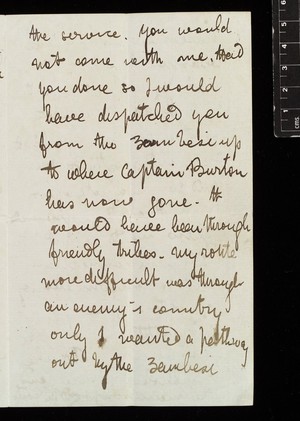 the service. You would
not come with me. Had
you done so I would
have dispatched you
from the Zambesi up
to where Captain Burton
has now gone. It
would have been through
friendly tribes - my route
more difficult was through
an enemy's country
only I wanted a pathway
out by the Zambesi
cms
1
2
3
4
5